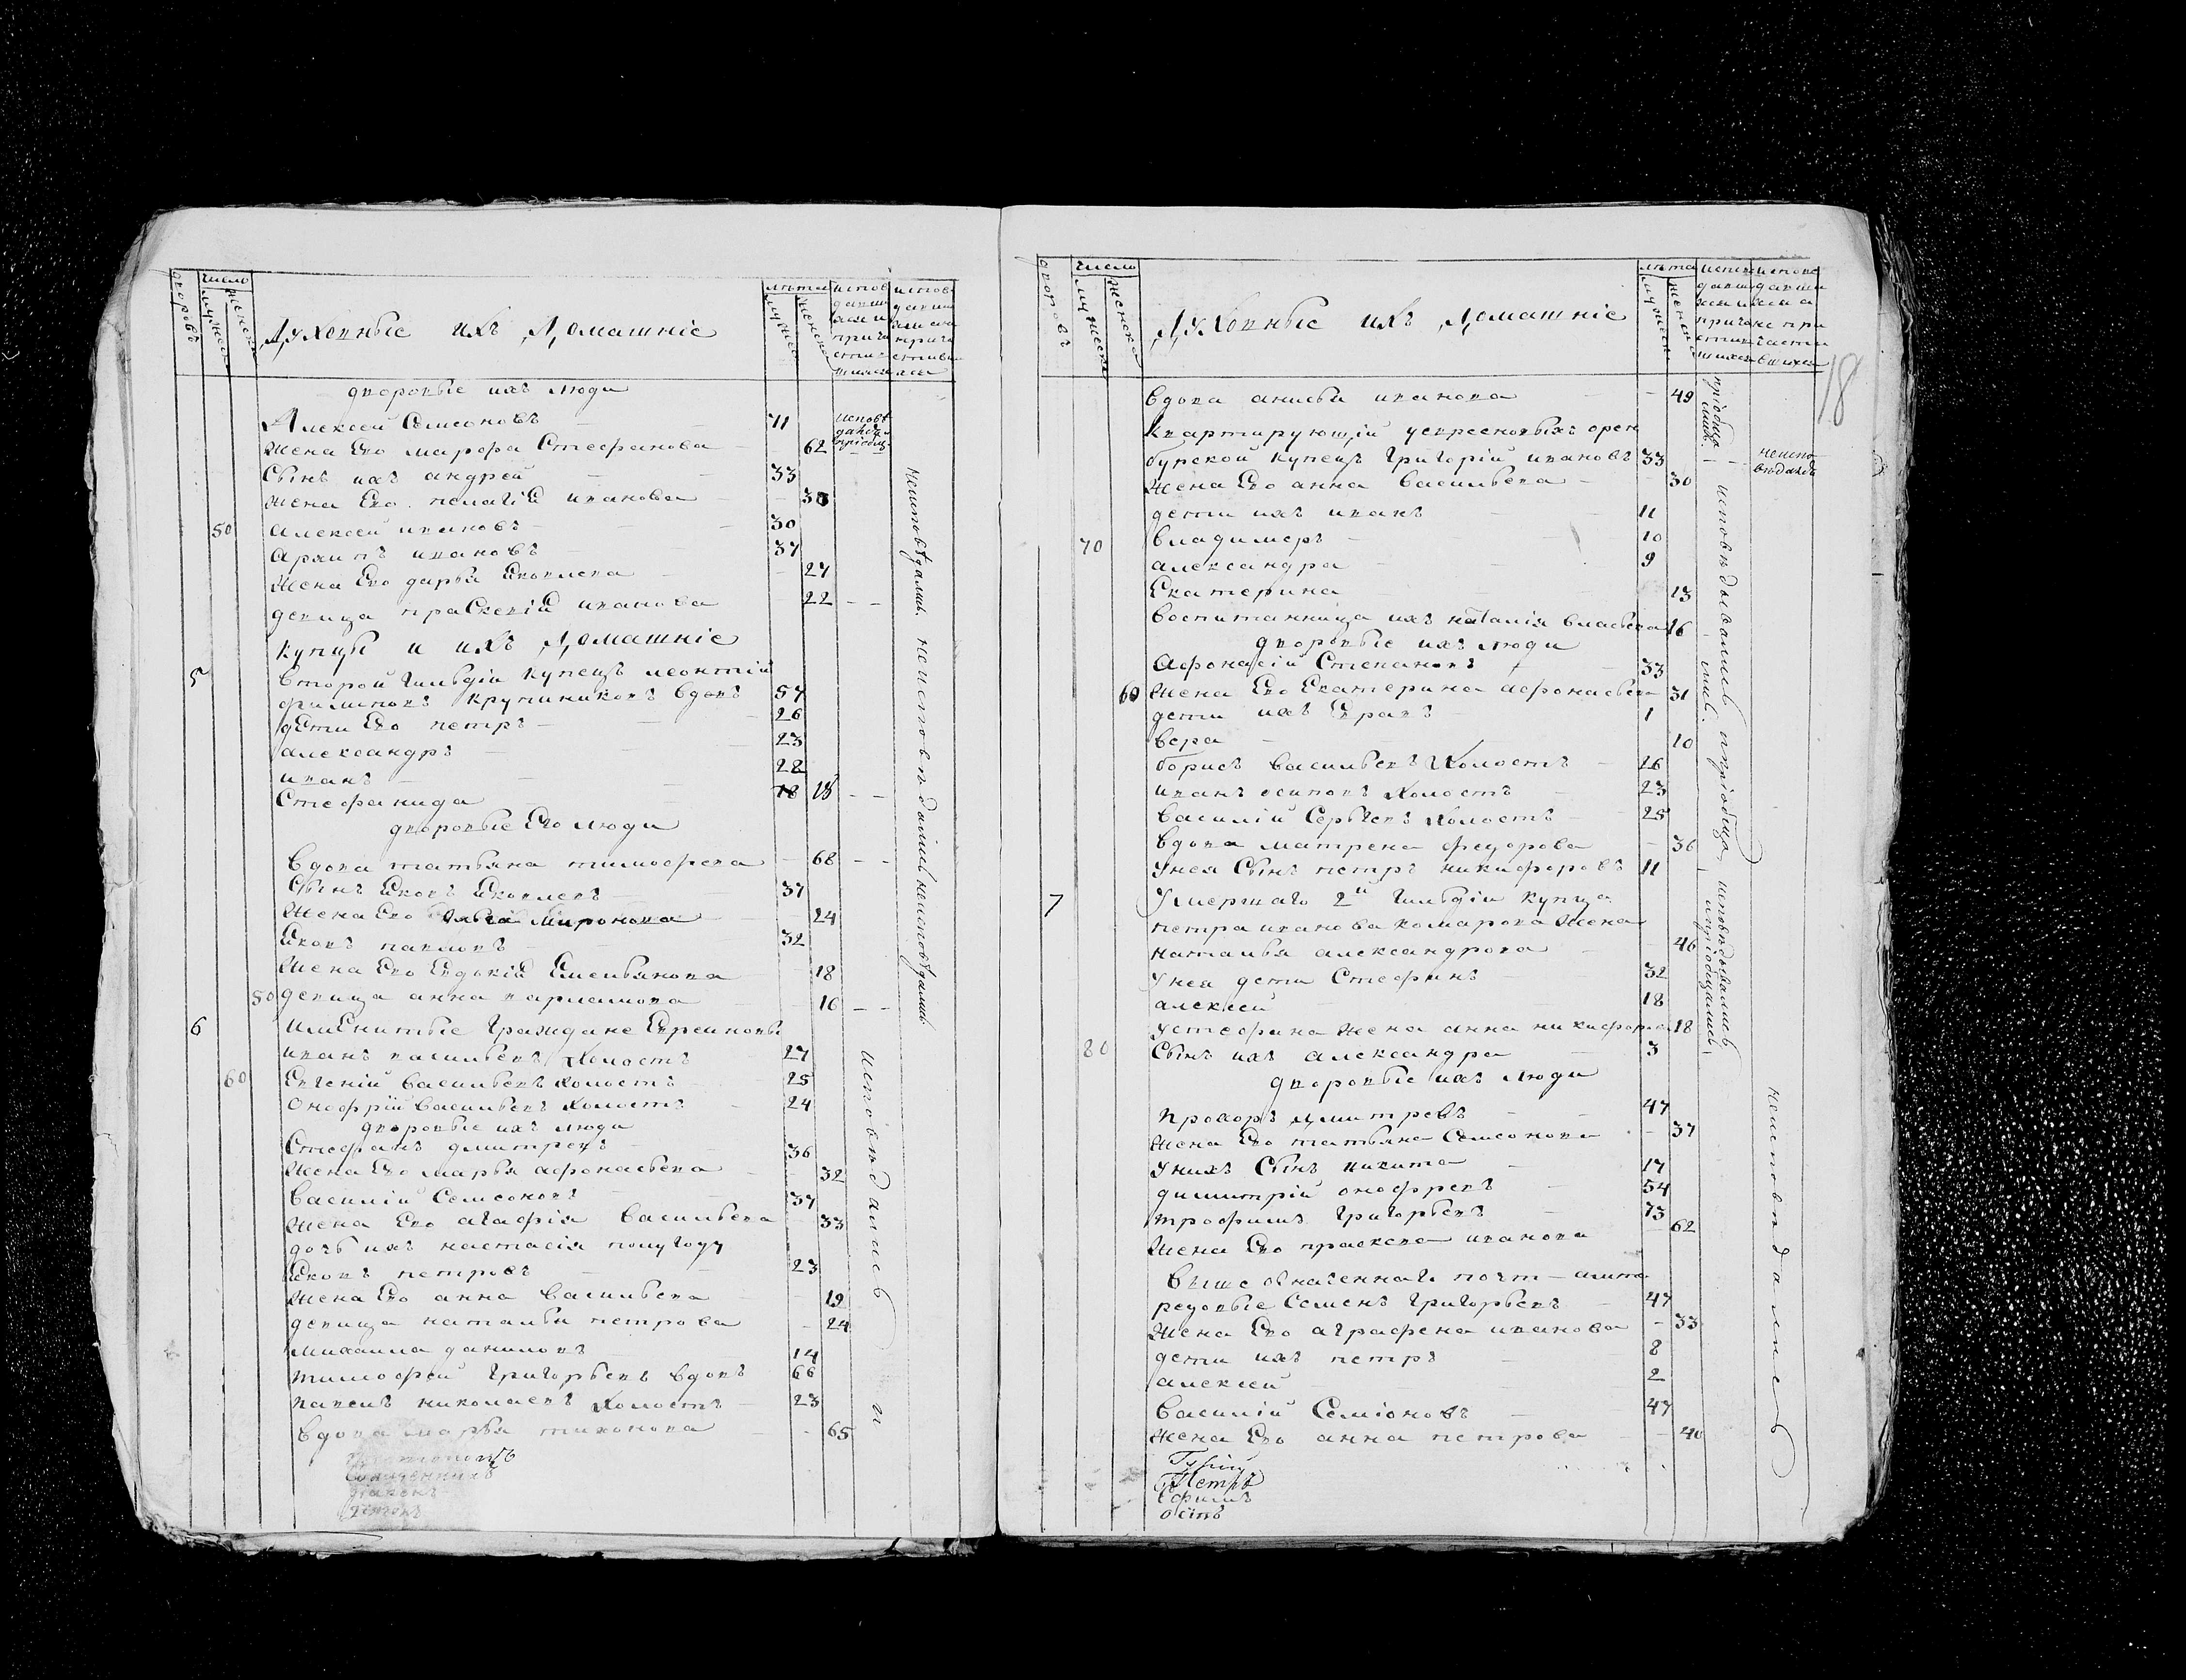 дворовъ
число
мужеск
женска
Духовные ихъ Домашніе
лѣта
мужес
женска
испов
давши
хся и
прича
сти
вшихся
дворовые ихъ люди
Алексей Семеоновъ 71
испове
дався
пріобщ
жена Его марфа Стефанова 62
Сынъ ихъ андрей 33
жена Его пелагіЯ иванова
50 алексеи ивановъ 30
архипъ ивановъ 37
жена Его дарья Яковлева 27
девица праСковіЯ иванова 22
купцы и ихъ Домашніе
5 второй гильдіи купецъ леонтій
филиповъ крупениковъ вдовъ 57
дети Его петръ 26
александръ 23
иванъ 22
Стефанида 18
дворовые Его люди
вдова татьяна тимофеева 68
Сынъ Яковъ Яковлевъ 37
жена Его Миронова 24
Яковъ павловъ 32
жена Его ЕвдокіЯ Емельянова 18
50 девица анна варламова 16
6 имЕнитые граждане Евреиновы
иванъ васильевъ холостъ 27
60 Евгеній васильевъ холостъ 25
Онофрій васильевъ холостъ 24
дворовые ихъ люди
Стефанъ дмитревъ 36
жена Его марья афонасьева 32
василій Семеоновъ 37
жена Его агафія васильева 33
дочь ихъ настасія полугоду
Яковъ петровъ 23
жена Его анна васильева 19
девица наталья петрова 24
михаила даниловъ 14
тимофей григорьевъ вдовъ 66
павелъ николаевъ холостъ 23
вдова марья тихонова 65
неисповедались неисповедались неисповедались
исповедались и
Священникъ
диаконъ
дворовъ
число
мужеска
женска
Духовные ихъ Домашніе
лѣта
18
вдова анисья иванова 49
квартирующій уевреновыхъ орен
бурской купецъ григорій ивановъ 33
неиспо
ведался
жена Его анна васильева 30
дети ихъ иванъ 11
70 владимеръ 10
александра 9
Екатерина 13
воспитанница ихъ наталія власьева 16
дворовые ихъ люди
Афонасій Степановъ 33
60 жена Его Екатерина афонасьева 31
дети ихъ 1
вера 10
борисъ васильевъ холостъ 26
иванъ осиповъ холостъ 23
василій Сергеевъ холостъ 25
вдова матрена федорова 36
Унея Сынъ петръ никифоровъ 11
7 Умершаго 2й гильдіи купца
петра иванова комарова жена
наталья александрова 46
Унея дети Стефанъ 32
алексей 18
Устефана жена анна никифорова 18
80 Сынъ ихъ александра 3
дворовые ихъ люди
прохоръ дмитревъ 47
жена Его татьяна Семеонова 37
Унихъ Сынъ никита 17
димитрій онофревъ 54
трофимъ григорьевъ 73
жена Его праскева иванова 62
выше означеннаго почт-амта
редовые Семенъ григорьевъ 47
жена Его аграфена иванова 33
дети ихъ петръ 8
алексей 2
василій Семіоновъ 47
жена Его анна петрова 40
исповедывались ипріобща
исповедывались
ипріобщались
неисповедались
Гурій
Петръ
Ефимъ